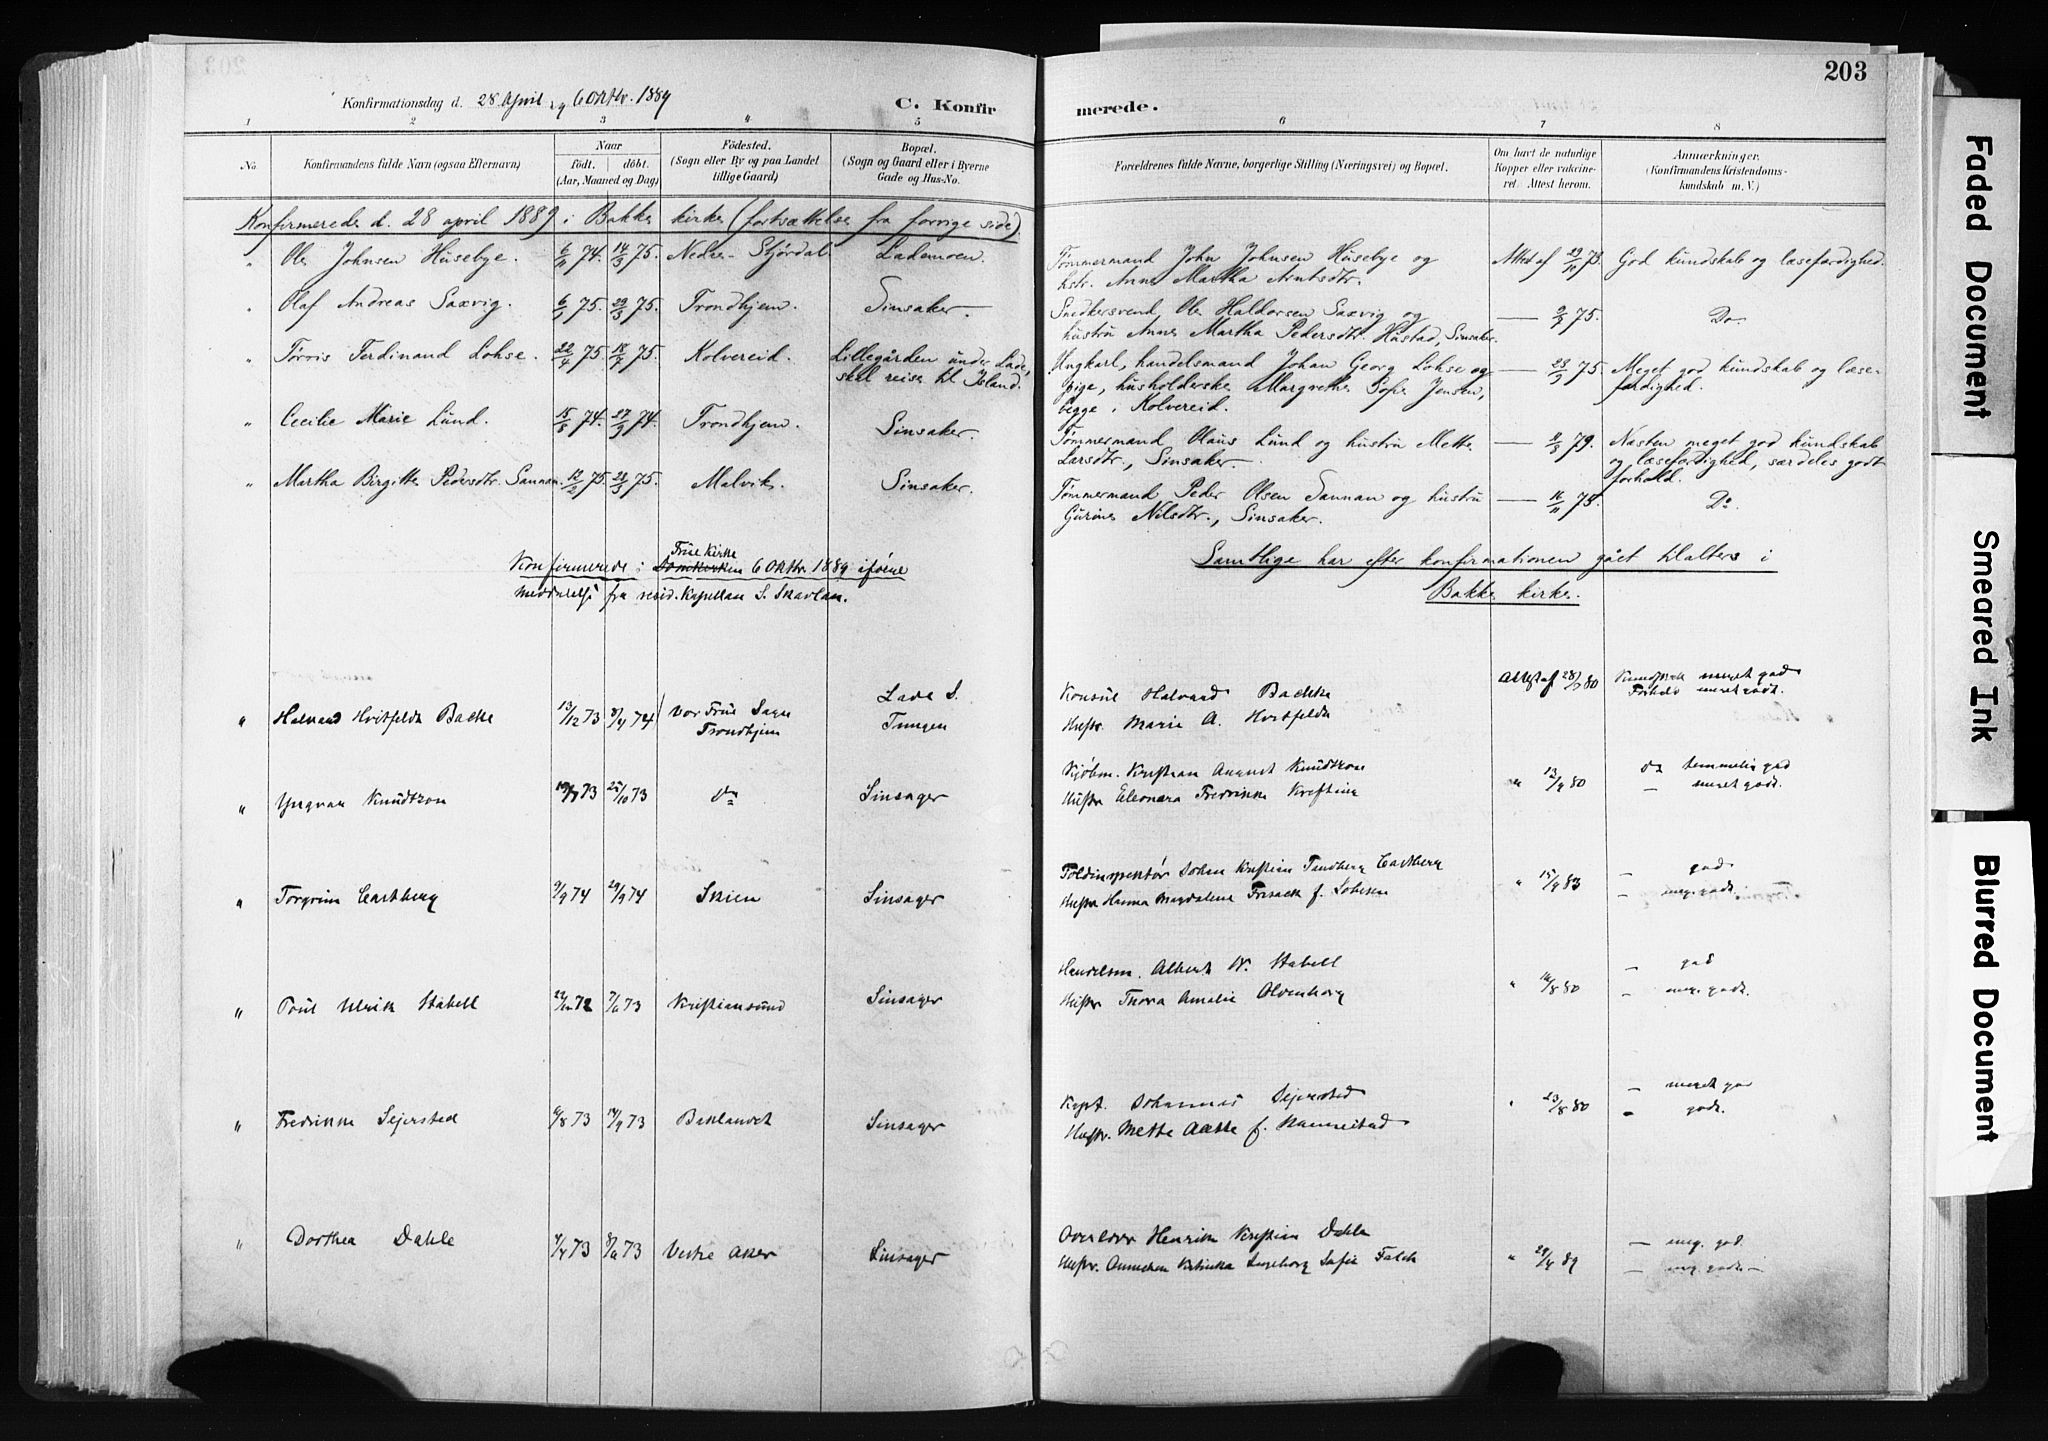 203
Konfirmationsdag d. 28 April og 6 Oktbr. 1889
C. Konfir merede.
1 2 3 4 5 6 7 8
No. Konfirmandens fulde Navn (ogsaa Efternavn)
Naar
födt. döbt.
(Aar, Maaned og Dag)
Födested.
(Sogn eller By og paa Landet
tillige Gaard)
Bopæl.
(Sogn og Gaard eller i Byerne
Gade og Hus-No.
Forældrenes fulde Navne, borgerlige Stilling (Næringsvei) og Bopæl.
Om havt de naturlige
Kopper eller vakcine-
ret. Attest herom.
Anmærkninger.
(Konfirmandens Kristendoms-
kundskab m. V.)
Konfirmerede d. 28 april 1889 i Bakke kirke (fortsættelse fra forrige side)
" Ole Johnsen Husebye. 6/11 74. 14/3 75. Nedre Stjørdal Lademoen. Tømmermand John Johnsen Husebye og Attest af 29/10 75. God kundskab og læsefærdighed.
hstr. Anne Martha Arntsdtr.
" Olaf Andreas Saxvig. 6/1 75. 29/3 75. Trondhjem. Sinsaker. Snedkersvend Ole Haldorsen Saxvig og — 2/7 75. Do
hustru Anne Martha Pedersdtr. Hustad, Sinsaker.
" Tørris Ferdinand Lohse. 22/4 75. 18/7 75. Kolvereid. Lillegården under Lade, Ungkarl, handelsmand Johan Georg Lohse og — 23/9 75. Meget god kundskab og læse-
skal reise til Island. pige, husholderske Margrethe Sofie Jensen, færdighed.
begge i Kolvereid.
" Cecilie Marie Lund. 15/8 74. 27/9 74. Trondhjem. Sinsaker. Tømmermand Olaus Lund og hustru Mette — 11/8 79. Næsten meget god kundskab
Larsdtr., Sinsaker. og læsefærdighed, særdeles godt
forhold.
" Martha Birgitte Pedersdtr. Sannan. 12/2 75. 28/3 75. Malvik. Sinsaker. Tømmermand Peder Olsen Sannan og hustru — 16/11 75. Do
Gurine Nilsdtr., Sinsaker.
Frue Kirke
Konfirmerede i Domkirken 6 Oktbr. 1889 ifølge
meddelelse fra resid. Kapellan S. Skavlan.
Samtlige har efter konfirmationen gået tilalters i
Bakke kirke.
" Halvard Hvitfeldt Backe 13/12 73 8/4 74 Vor Frue Sogn Lade S. Konsul Halvard Backe Attest af 28/7 80 Kundskab meget god
Trondhjem Tungen Hustr. Marie A. Hvitfeldt Forhold meget godt.
" Yngvar Knudtzon 19/7 73 25/10 73 do Sinsager Kjøbm. Kristian August Knudtzon " 13/9 80 do temmelig god
Hustr Eleonora Fredrikke Krefting — meget godt.
" Torgrim Castberg 9/9 74 29/9 74 Skien Sinsager Toldinspektør Johan Kristian Tandberg Castberg " 15/9 83 — god
Hustr Hanna Magdalena Frisack f. — meg. godt.
" Poul Ulrik Stabell 22/12 72 7/6 73 Kristiansund Sinsager Handelsm. Albert W. Stabell " 16/8 80 — god
Hustr Thora Amalie — meg. godt.
" Fredrikke Sejersted 6/8 73 14/9 73 Baklandet Sinsager Kapt. Johannes Sejersted " 23/8 80 — meget god
Hustr. Mette Aasta f. — godt.
" Dorthea Dahle 4/4 73 8/6 73 Vestre Aker Sinsager Overlærer Henrik Kristian Dahle " 29/4 89 — meg. god.
Hustr. Annichen Katinka Ingeborg Sofie Falch — meg godt —
Faded Document
Smeared Ink
Blurred Document